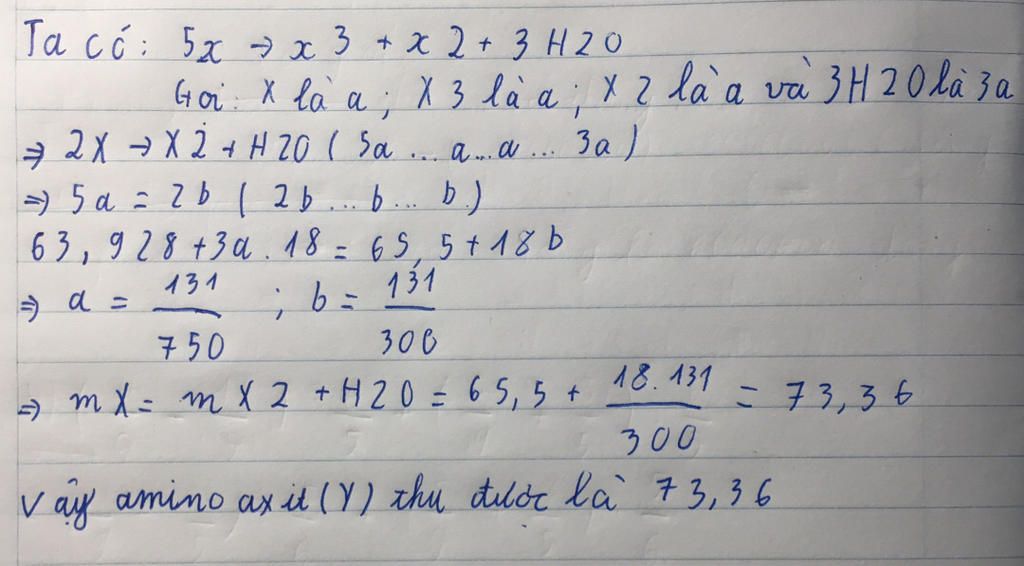 Ta có: 5x → x 3 + x 2 + 3 H2O
Gọi: X là a; X 3 là a; X 2 là a và 3H2O là 3a
⇒ 2X → X 2 + H2O ( 5a ... a ... a ... 3a )
⇒ 5a = 2b ( 2b ... b ... b )
63,928 + 3a . 18 = 65,5 + 18b
⇒ a = 131/750 ; b = 131/300
⇒ m X = m X 2 + H2O = 65,5 + 18.131/300 = 73,36
Vậy amino axit (Y) thu được là 73,36